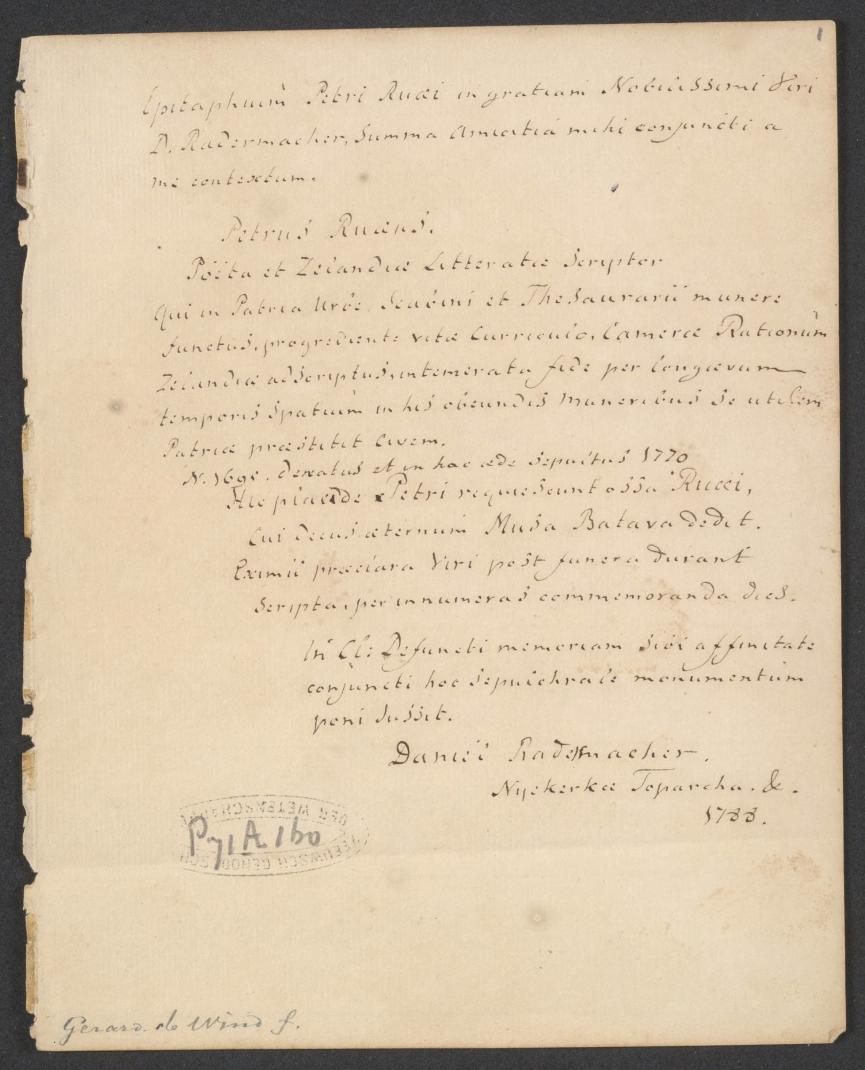 1
Epitaphium Petri Ruæi in gratiam Nobilissimi Viri
D. Radermacher, Summa Amicitiâ mihi conjuncti a
me contextum.
Petrus Ruæus.
Poëta et Zelandiæ Litteratæ Scriptor
Qui in Patria Urbe, Scabini et Thesaurarii munere
functus, progrediente vitæ Curriculo, Cameræ Rationum
Zelandiæ adscriptus, intemerata fide per longævum
temporis spatium in his obeundis muneribus se utilem
Patriæ præstitit Civem.
N. 1695. denatus et in hac æde sepultus 1770
Hic placide Petri requiescunt ossa Ruæi,
Cui decus æternum Musa Batava dedit.
Eximii præclara Viri post funera durant
Scripta, per innumeras commemoranda dies.
In Cl: Defuncti memoriam sibi affinitate
conjuncti hoc sepulchrale monumentum
poni Jussit.
Daniel Radermacher.
Nyekerkæ Toparcha. &.
1788.
DER WETENSCHAPPEN
P71A160
ZEEUWSCH GENOOTSCHAP
Gerard. de Wind f.